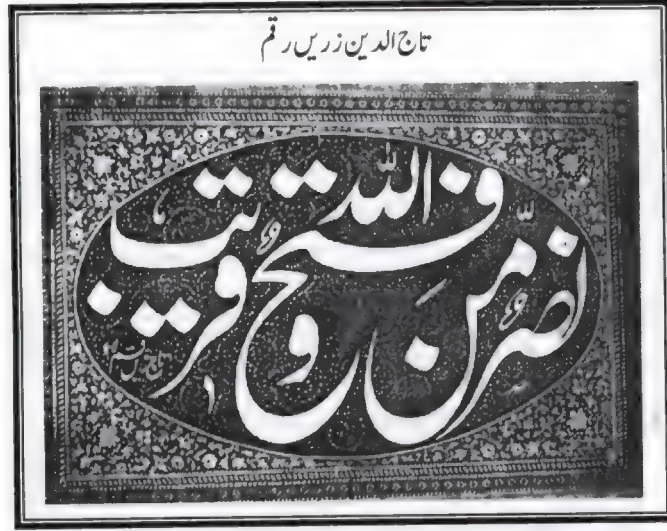 تاج الدین زریں رقم
نصر من الله وفتح قریب